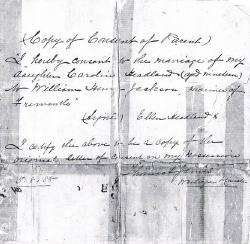 (Copy of Consent of Parent)
I hereby consent to the marriage of my
daughter Caroline Headland (aged nineteen)
to William Henry Jackson, of
Fremantle"
(Signed) Ellen Headland x
I certify the above to be a copy of the
original letter of consent in my possession
5.8.08